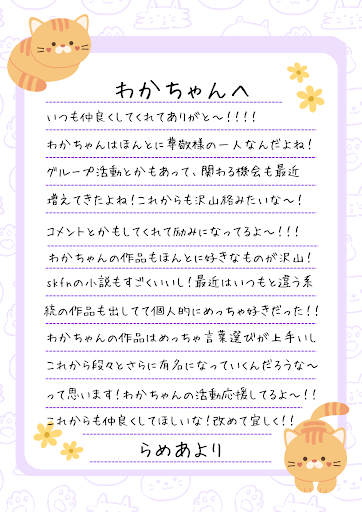 わかちゃんへ
いつも仲良くしてくれてありがと〜!!!!
わかちゃんはほんとに尊敬様の一人なんだよね!
グループ活動とかもあって、関わる機会も最近
増えてきたよね!これからも沢山絡みたいな〜!
コメントとかもしてくれて励みになってるよ〜!!!
わかちゃんの作品もほんとに好きなものが沢山!
skfnの小説もすごくいいし!最近はいつもと違う系
統の作品も出してて個人的にめっちゃ好きだった!!
わかちゃんの作品はめっちゃ言葉選びが上手いし
これから段々とさらに有名になっていくんだろうな〜
って思います!わかちゃんの活動応援してるよ〜!!
これからも仲良くしてほしいな!改めて宜しく!!
らめあより